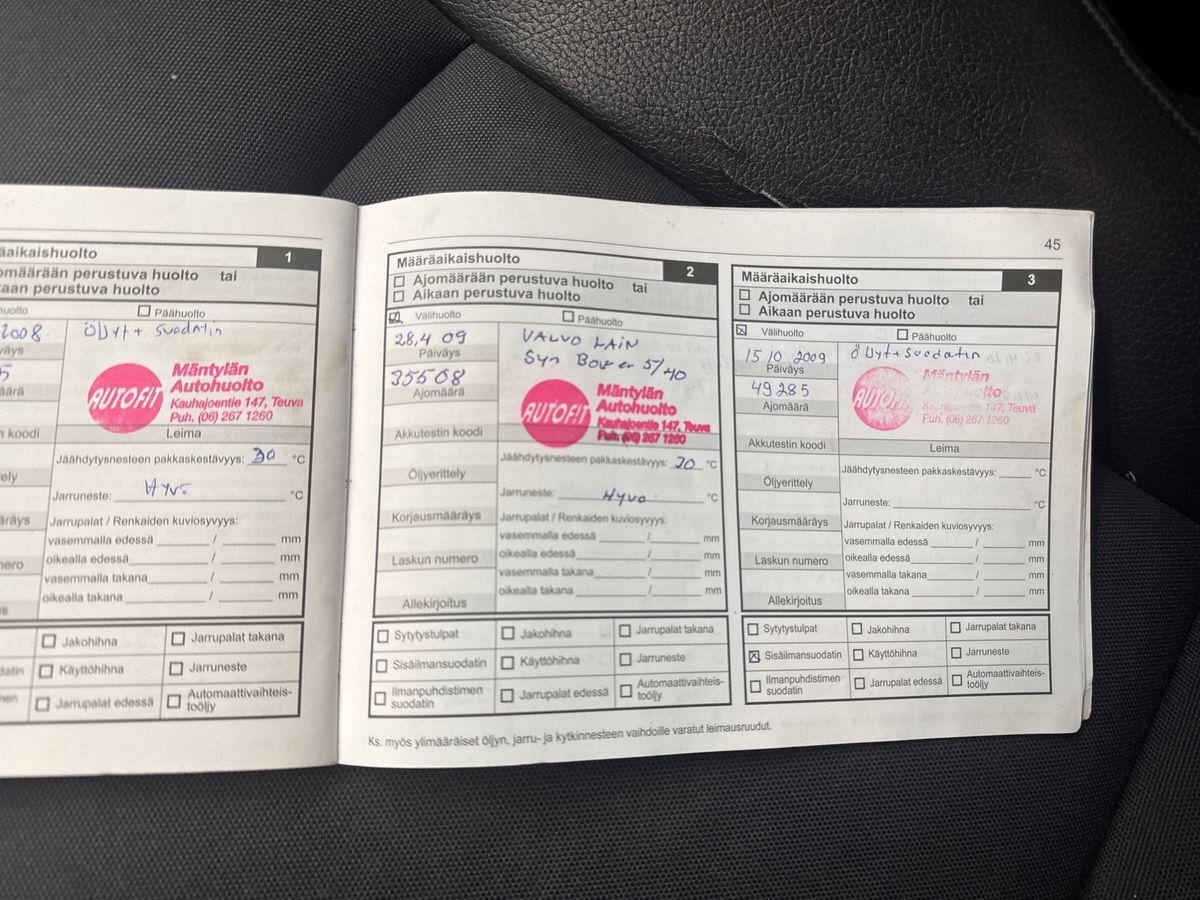 äaikaishuolto 1
omäärään perustuva huolto tai
aan perustuva huolto
huolto ☐ Päähuolto
2008 Öljyt + suodatin
väys
5
äärä
AUTOFIT
Mäntylän
Autohuolto
Kauhajoentie 147, Teuva
Puh. (06) 267 1260
n koodi Leima
Jäähdytysnesteen pakkaskestävyys: 30 °C
tely
Jarruneste: Hyvä °C
äräys Jarrupalat / Renkaiden kuviosyvyys:
vasemmalla edessä / mm
mero oikealla edessä / mm
vasemmalla takana / mm
us oikealla takana / mm
☐ Jakohihna ☐ Jarrupalat takana
datin ☐ Käyttöhihna ☐ Jarruneste
☐ Jarrupalat edessä ☐ Automaattivaihteis-
toöljy
45
Määräaikaishuolto 2
☐ Ajomäärään perustuva huolto tai
☐ Aikaan perustuva huolto
☑ Välihuolto ☐ Päähuolto
28,4 09 VALVO LAIN
Päiväys Syn Power 5/40
35508
Ajomäärä
AUTOFIT
Mäntylän
Autohuolto
Kauhajoentie 147, Teuva
Puh. (06) 267 1260
Akkutestin koodi
Jäähdytysnesteen pakkaskestävyys: 30 °C
Öljyerittely
Jarruneste: Hyvä °C
Korjausmääräys Jarrupalat / Renkaiden kuviosyvyys:
vasemmalla edessä / mm
Laskun numero oikealla edessä / mm
vasemmalla takana / mm
Allekirjoitus oikealla takana / mm
☐ Sytytystulpat ☐ Jakohihna ☐ Jarrupalat takana
☐ Sisäilmansuodatin ☐ Käyttöhihna ☐ Jarruneste
☐ Ilmanpuhdistimen
suodatin ☐ Jarrupalat edessä ☐ Automaattivaihteis-
toöljy
Määräaikaishuolto 3
☐ Ajomäärään perustuva huolto tai
☐ Aikaan perustuva huolto
☒ Välihuolto ☐ Päähuolto
15 10 2009 Öljyt + suodatin
Päiväys
49285
Ajomäärä
AUTOFIT
Mäntylän
Autohuolto
Kauhajoentie 147, Teuva
Puh. (06) 267 1260
Akkutestin koodi Leima
Jäähdytysnesteen pakkaskestävyys: °C
Öljyerittely
Jarruneste: °C
Korjausmääräys Jarrupalat / Renkaiden kuviosyvyys:
vasemmalla edessä / mm
Laskun numero oikealla edessä / mm
vasemmalla takana / mm
Allekirjoitus oikealla takana / mm
☐ Sytytystulpat ☐ Jakohihna ☐ Jarrupalat takana
☒ Sisäilmansuodatin ☐ Käyttöhihna ☐ Jarruneste
☐ Ilmanpuhdistimen
suodatin ☐ Jarrupalat edessä ☐ Automaattivaihteis-
toöljy
Ks. myös ylimääräiset öljyn, jarru- ja kytkinnesteen vaihdoille varatut leimausruudut.